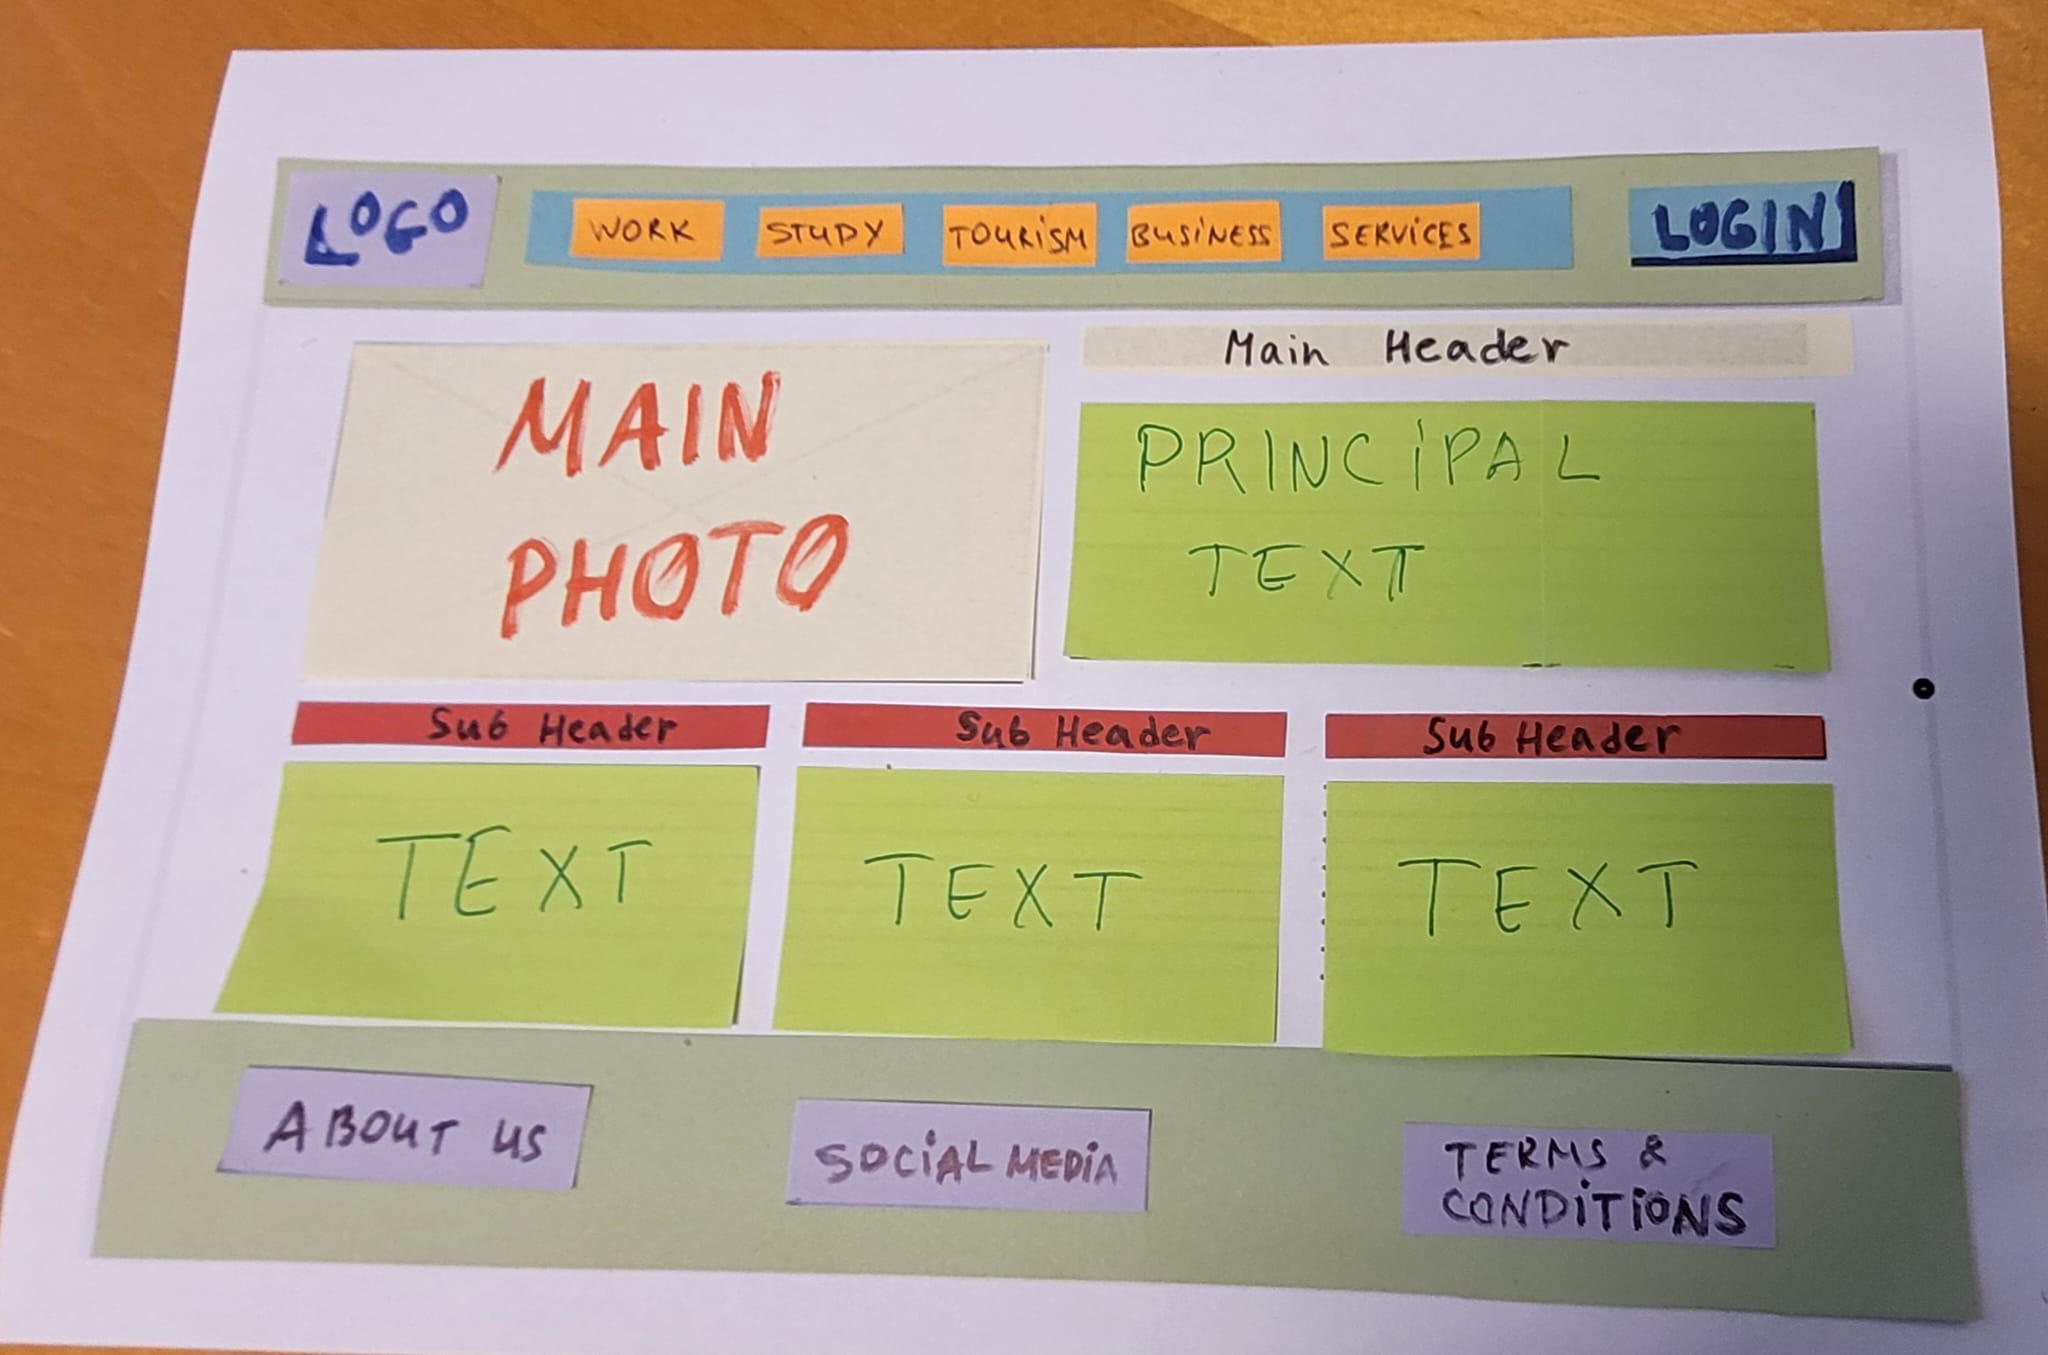 LOGO
WORK
STUDY
TOURiSM
BUSiNESS
SERViCES
LOGIN
MAIN
PHOTO
Main Header
PRINCiPAL
TEXT
Sub Header
Sub Header
Sub Header
TEXT
TEXT
TEXT
ABOUT US
SOCiAL MEDiA
TERMS &
CONDiTiONS